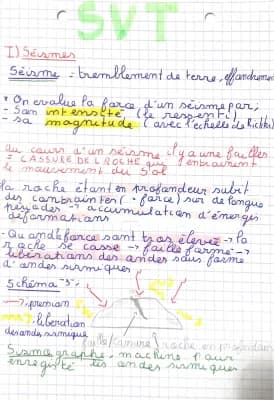 SVT
I) Séismes
Séisme = tremblement de terre, effondrement
* On evalue la force d'un séisme par;
- Son intensité (le ressenti)
- sa magnitude (avec l'échelle de Richter)
au cours d'un séisme il y a une failles
= CASSURE DE LA ROCHE que l'entrainent
le mouvement du sol
la roche étant en profondeur subit
des contraintes (= force) sur de longue
périodes → accumulation d'énergies
déformations
- Quand la force sont trop élevée → la
roche se casse → faille formé →
libérations des ondes sous forme
d'ondes sismiques
Schéma
→ pression
→ liberation
des ondes sismiques
faille/cassure roche en profondeur
Sismographe, machine pour
enregisté les ondes sismiques